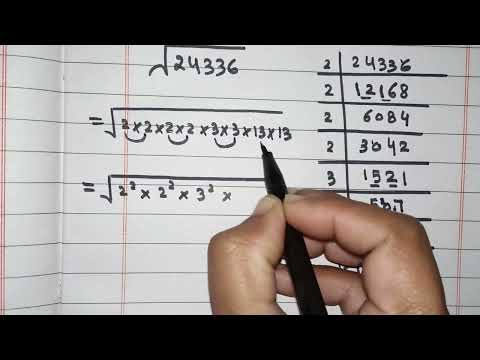 √24336
= √2×2×2×2×3×3×13×13
= √2²×2²×3²×
2 | 24336
2 | 12168
2 | 6084
2 | 3042
3 | 1521
507